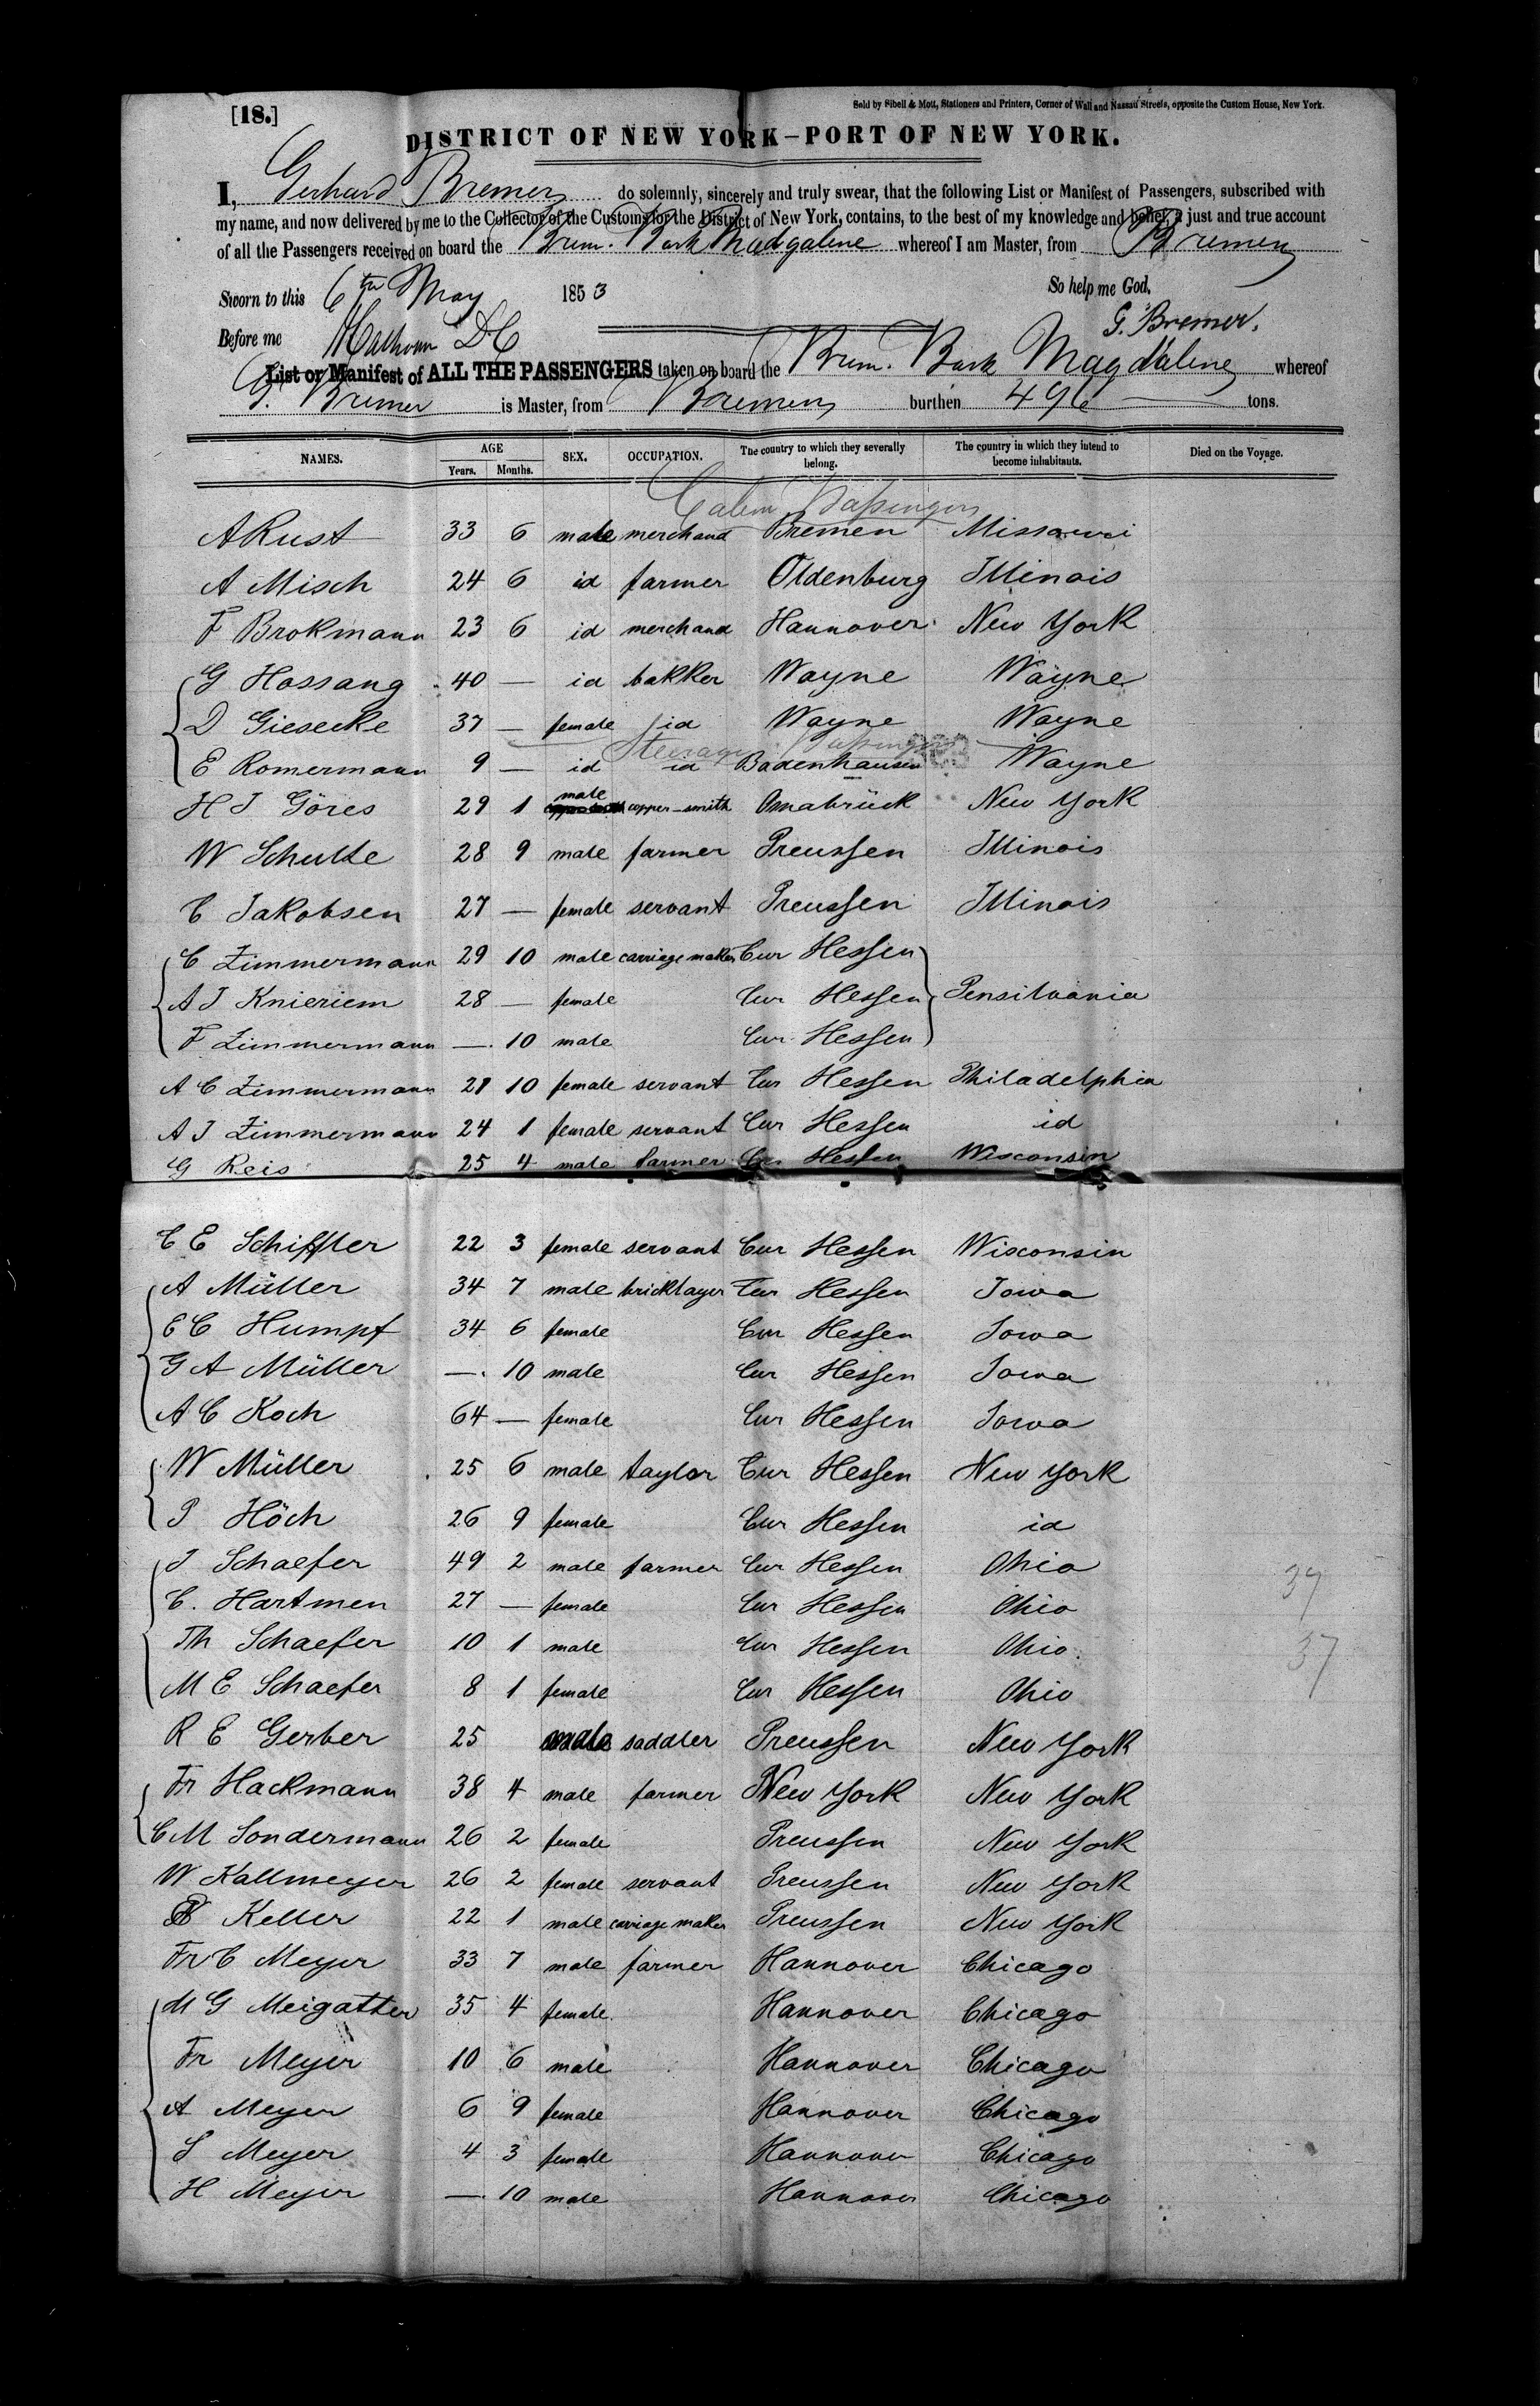 [18.]
Sold by Sibell & Mott, Stationers and Printers, Corner of Wall and Nassau Streets, opposite the Custom House, New York.
DISTRICT OF NEW YORK—PORT OF NEW YORK.
I, Gerhard Bremer do solemnly, sincerely and truly swear, that the following List or Manifest of Passengers, subscribed with
my name, and now delivered by me to the Collector of the Customs for the District of New York, contains, to the best of my knowledge and belief, a just and true account
of all the Passengers received on board the Brem. Bark Madgalene whereof I am Master, from Bremen
Sworn to this 6th May 1853 So help me God,
Before me DC G. Bremer.
List or Manifest of ALL THE PASSENGERS taken on board the Brem. Bark Magdalene whereof
G. Bremer is Master, from Bremen burthen 496 tons.
NAMES. AGE Years. Months. SEX. OCCUPATION. The country to which they severally belong. The country in which they intend to become inhabitants. Died on the Voyage.
Cabin Passengers
A Rust 33 6 male merchand Bremen Missouri
A Misch 24 6 id farmer Oldenburg Illinois
F Brokmann 23 6 id merchand Hannover New York
G Hossang 40 — id bakker Wayne Wayne
D Giesecke 37 — female id Wayne Wayne
Steerage Passengers
E Romermann 9 — id id Badenhausen Wayne
H J Göres 29 1 male copper-smith Osnabrück New York
W Schulte 28 9 male farmer Preussen Illinois
C Jakobsen 27 — female servant Preussen Illinois
C Zimmermann 29 10 male carriage maker Cur Hessen
A J Knieriem 28 — female Cur Hessen Pensilvania
F Zimmermann — 10 male Cur Hessen
A C Zimmermann 21 10 female servant Cur Hessen Philadelphia
A J Zimmermann 24 1 female servant Cur Hessen id
G Reis 25 4 male farmer Cur Hessen Wisconsin
C E Schiffler 22 3 female servant Cur Hessen Wisconsin
A Müller 34 7 male bricklayer Cur Hessen Iowa
E C Humpf 34 6 female Cur Hessen Iowa
G A Müller — 10 male Cur Hessen Iowa
A C Koch 64 — female Cur Hessen Iowa
W Müller 25 6 male taylor Cur Hessen New York
P Höch 26 9 female Cur Hessen id
J Schaefer 49 2 male farmer Cur Hessen Ohio
C. Hartmen 27 — female Cur Hessen Ohio 37
Th Schaefer 10 1 male Cur Hessen Ohio 37
M E Schaefer 8 1 female Cur Hessen Ohio
R E Gerber 25 male saddler Preussen New York
Fr Hackmann 38 4 male farmer New York New York
C M Sondermann 26 2 female Preussen New York
W Kallmeyer 26 2 female servant Preussen New York
Keller 22 1 male carriage maker Preussen New York
Fr C Meyer 33 7 male farmer Hannover Chicago
M G Meigatter 35 4 female Hannover Chicago
Fr Meyer 10 6 male Hannover Chicago
A Meyer 6 9 female Hannover Chicago
S Meyer 4 3 female Hannover Chicago
H Meyer — 10 male Hannover Chicago